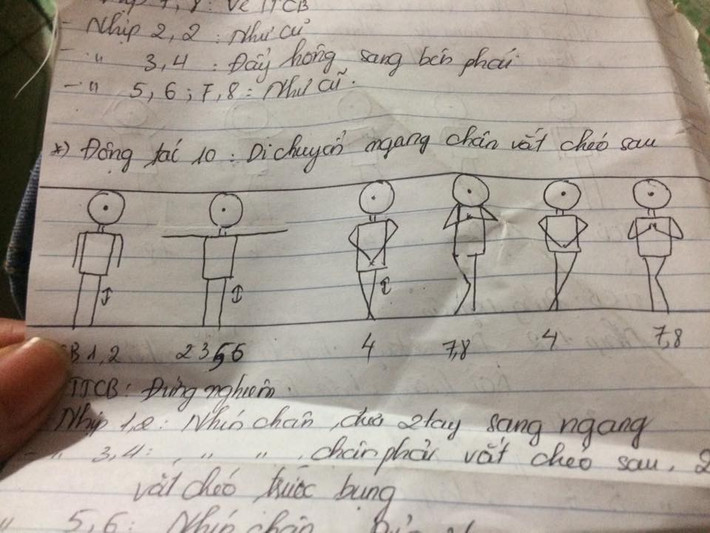 7, 8 : Về TTCB
- Nhịp 2, 2 : Như cũ
- " 3, 4 : Đẩy hông sang bên phải
- " 5, 6 ; 7, 8 : Như cũ.
*) Động tác 10 : Di chuyển ngang chân vắt chéo sau
CB 1, 2 2 3 5 6 4 7,8 4 7,8
TTCB : Đứng nghiêm.
Nhịp 1, 2 : Nhún chân, đưa 2 tay sang ngang
- " 3, 4 : " " , chân phải vắt chéo sau, 2
vắt chéo trước bụng
" 5, 6 : Nhún chân